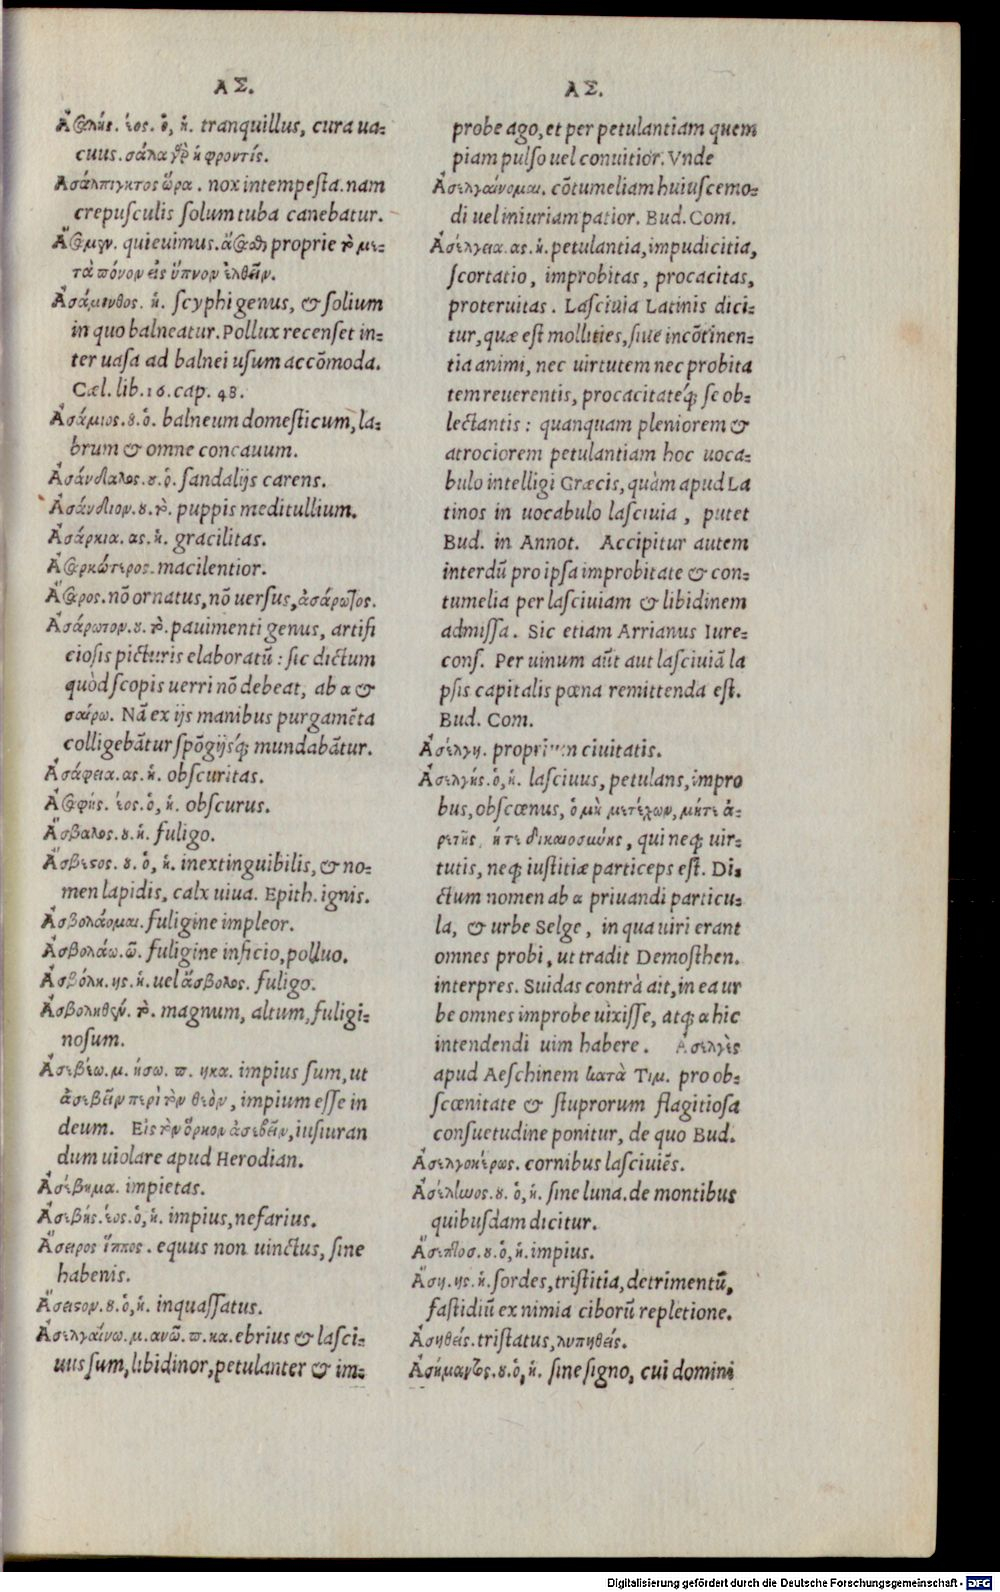 ΑΣ.
Ἀσαλὴς. έος. ὁ, ἡ. tranquillus, cura ua-
cuus. σάλα γὰρ ἡ φροντίς.
Ἀσάλπιγκτος ὥρα. nox intempesta. nam
crepusculis solum tuba canebatur.
Ἄσαμεν. quieuimus. ἄσαι proprie τὸ με-
τὰ πόνον εἰς ὕπνον ἐλθεῖν.
Ἀσάμινθος. ἡ. scyphi genus, & solium
in quo balneatur. Pollux recenset in-
ter uasa ad balnei usum accōmoda.
Cæl. lib. 16. cap. 48.
Ἀσάμιος. ου. ὁ. balneum domesticum, la-
brum & omne concauum.
Ἀσάνδαλος. ου. ὁ. sandalijs carens.
Ἀσάνδιον. ου. τὸ. puppis meditullium.
Ἀσάρκια. ας. ἡ. gracilitas.
Ἀσαρκώτερος. macilentior.
Ἄσαρος. nō ornatus, nō uersus, ἀσάρωτος.
Ἀσάρωτον. ου. τὸ. pauimenti genus, artifi
ciosis picturis elaboratū: sic dictum
quòd scopis uerri nō debeat, ab α &
σαίρω. Nā ex ijs manibus purgamēta
colligebātur spōgijsq́; mundabātur.
Ἀσάφεια. ας. ἡ. obscuritas.
Ἀσαφὴς. έος. ὁ, ἡ. obscurus.
Ἄσβαλος. ου. ἡ. fuligo.
Ἄσβεστος. ου. ὁ, ἡ. inextinguibilis, & no-
men lapidis, calx uiua. Epith. ignis.
Ἀσβολάομαι. fuligine impleor.
Ἀσβολάω. ῶ. fuligine inficio, polluo.
Ἀσβόλη. ης. ἡ. uel ἄσβολος. fuligo.
Ἀσβοληθὲν. τὸ. magnum, altum, fuligi-
nosum.
Ἀσεβέω. μ. ήσω. π. ηκα. impius sum, ut
ἀσεβεῖν περὶ τὸν θεὸν, impium esse in
deum. Εἰς τὸν ὅρκον ἀσεβεῖν, iusiuran
dum uiolare apud Herodian.
Ἀσέβημα. impietas.
Ἀσεβὴς. έος. ὁ, ἡ. impius, nefarius.
Ἄσειρος ἵππος. equus non uinctus, sine
habenis.
Ἄσειστον. ου. ὁ, ἡ. inquassatus.
Ἀσελγαίνω. μ. ανῶ. π. κα. ebrius & lasci-
uus sum, libidinor, petulanter & im-
ΑΣ.
probe ago, et per petulantiam quem
piam pulso uel conuitior. Vnde
Ἀσελγαίνομαι. cōtumeliam huiuscemo-
di uel iniuriam patior. Bud. Com.
Ἀσέλγεια. ας. ἡ. petulantia, impudicitia,
scortatio, improbitas, procacitas,
proteruitas. Lasciuia Latinis dici-
tur, quæ est mollities, siue incōtinen-
tia animi, nec uirtutem nec probita
tem reuerentis, procacitateq́; se ob-
lectantis: quanquam pleniorem &
atrociorem petulantiam hoc uoca-
bulo intelligi Græcis, quàm apud La
tinos in uocabulo lasciuia, putet
Bud. in Annot. Accipitur autem
interdū pro ipsa improbitate & con-
tumelia per lasciuiam & libidinem
admissa. Sic etiam Arrianus Iure-
cons. Per uinum aūt aut lasciuiā la
psis capitalis pœna remittenda est.
Bud. Com.
Ἀσέλγη. proprium ciuitatis.
Ἀσελγὴς. ὁ, ἡ. lasciuus, petulans, impro
bus, obscœnus, ὁ μὴ μετέχων, μήτε ἀ-
ρετῆς, ήτε δικαιοσύνης, qui neq; uir-
tutis, neq; iustitiæ particeps est. Di-
ctum nomen ab α priuandi particu-
la, & urbe Selge, in qua uiri erant
omnes probi, ut tradit Demosthen.
interpres. Suidas contrà ait, in ea ur
be omnes improbe uixisse, atq; α hic
intendendi uim habere. Ἀσελγὲς
apud Aeschinem κατὰ Τιμ. pro ob-
scœnitate & stuprorum flagitiosa
consuetudine ponitur, de quo Bud.
Ἀσελγοκέρως. cornibus lasciuiēs.
Ἀσέληνος. ου. ὁ, ἡ. sine luna. de montibus
quibusdam dicitur.
Ἄσεπτος. ου. ὁ, ἡ. impius.
Ἄση. ης. ἡ. sordes, tristitia, detrimentū,
fastidiū ex nimia ciborū repletione.
Ἀσηθείς. tristatus, λυπηθείς.
Ἀσήμαντος. ου. ὁ, ἡ. sine signo, cui domini
Digitalisierung gefördert durch die Deutsche Forschungsgemeinschaft - DFG